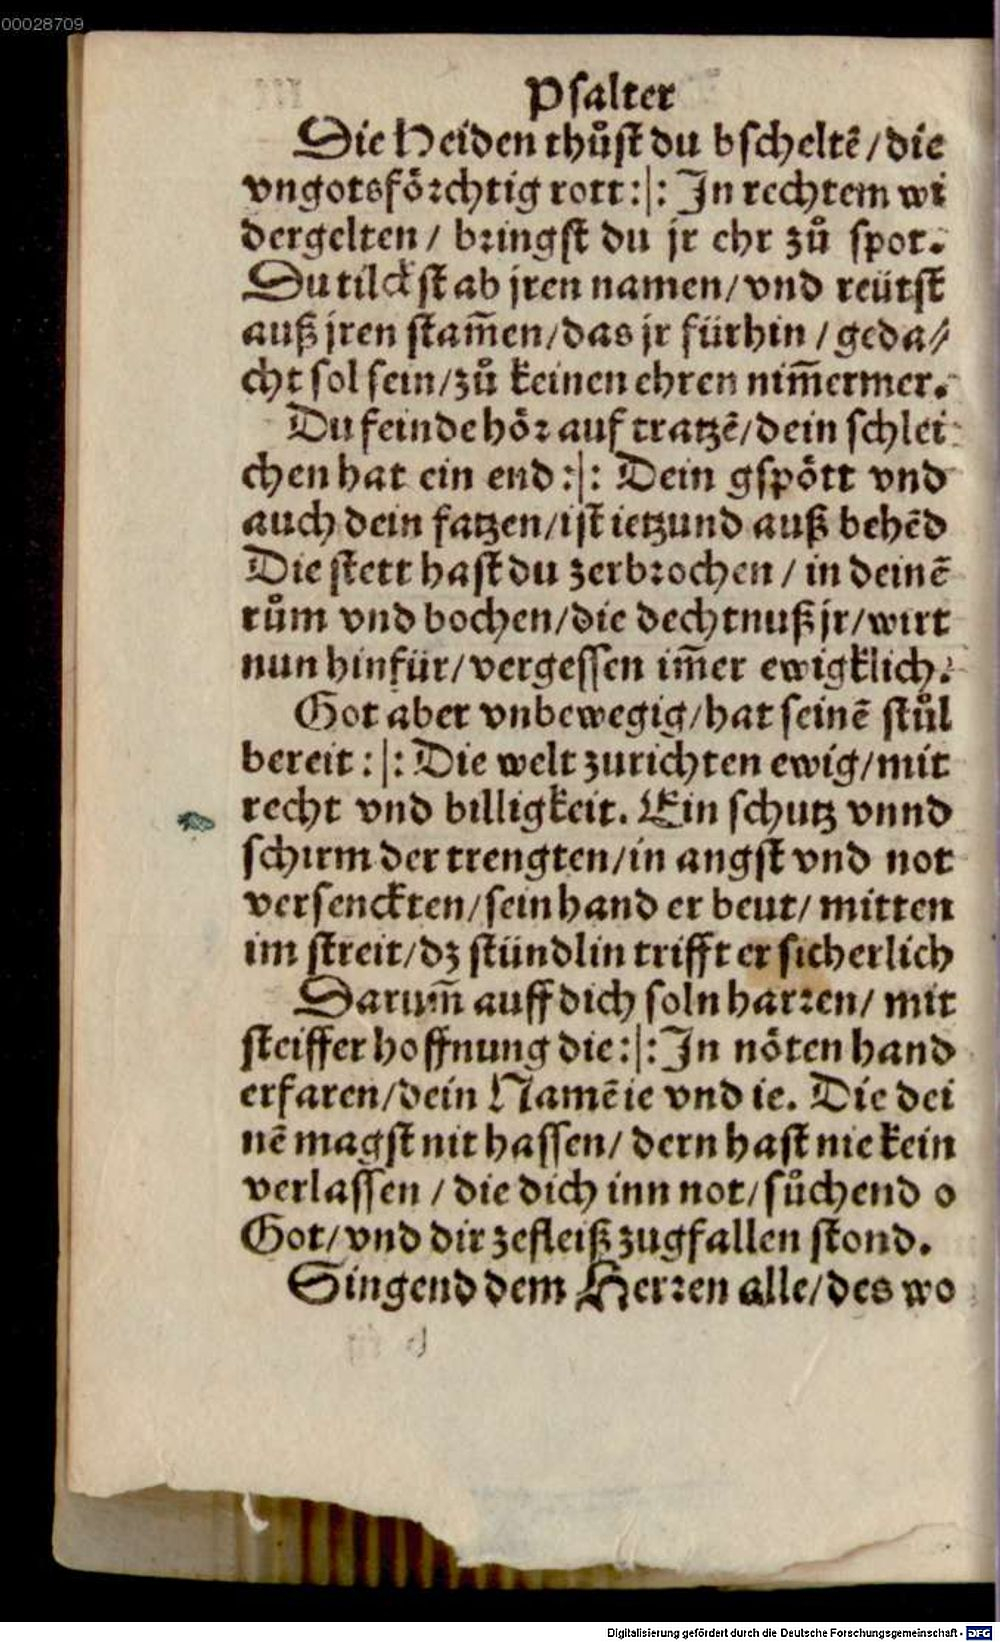 00028709
Psalter
Die Heiden thůst du bscheltē/die
vngotsförchtig rott:|: In rechtem wi
dergelten / bringst du jr ehr zů spot.
Du tilckst ab jren namen/vnd reütst
auß jren stam̄en/das jr fürhin / geda⸗
cht sol sein/zů keinen ehren nim̄ermer.
Du feinde hör auf tratzē/dein schlei
chen hat ein end:|: Dein gspött vnd
auch dein fatzen/ist ietzund auß behēd
Die stett hast du zerbrochen / in deinē
rům vnd bochen/die dechtnuß jr/wirt
nun hinfür/vergessen im̄er ewigklich.
Got aber vnbewegig/hat seinē stůl
bereit:|: Die welt zurichten ewig/mit
recht vnd billigkeit. Ein schutz vnnd
schirm der trengten/in angst vnd not
versenckten/sein hand er beut/ mitten
im streit/dz stündlin trifft er sicherlich
Darum̄ auff dich soln harren/ mit
steiffer hoffnung die:|: In nöten hand
erfaren/dein Namē ie vnd ie. Die dei
nē magst nit hassen/ dern hast nie kein
verlassen / die dich inn not/sůchend o
Got/vnd dir zefleiß zugfallen stond.
Singend dem Herren alle/des wo
Digitalisierung gefördert durch die Deutsche Forschungsgemeinschaft - DFG